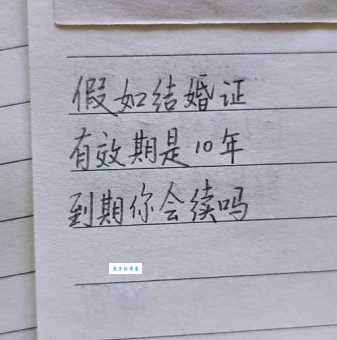 假如结婚证
有效期是10年
到期你会续吗